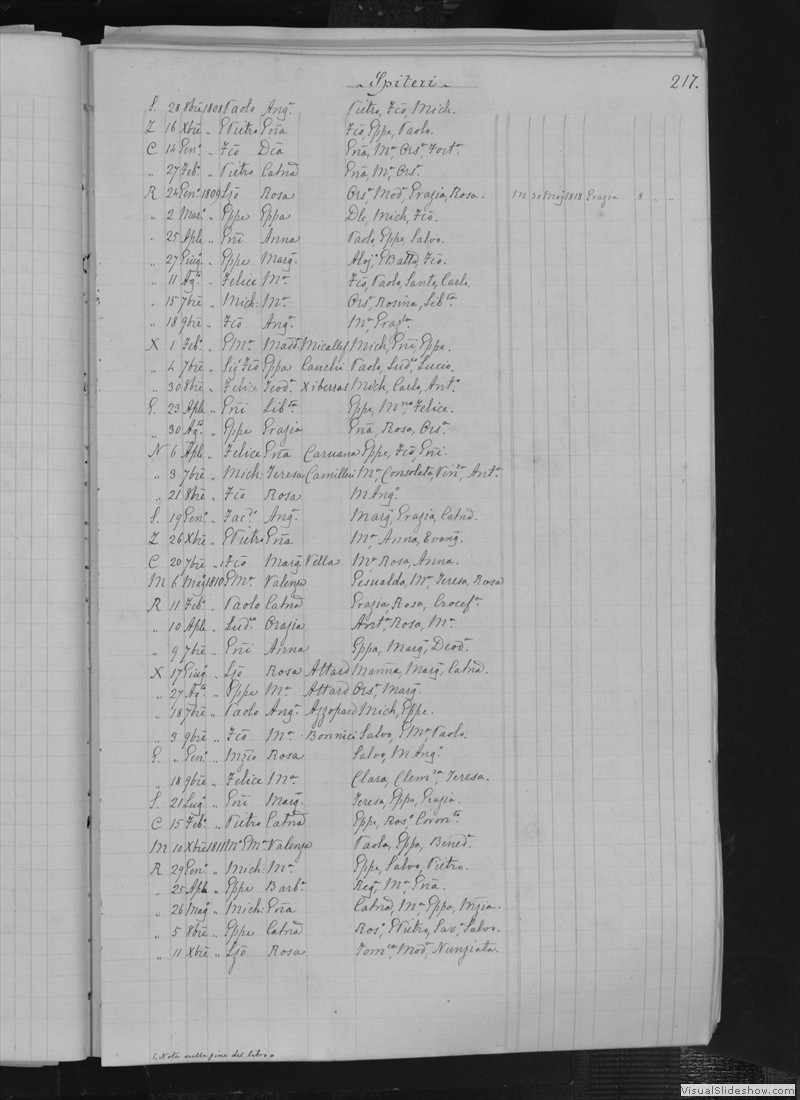 Spiteri
217.
S. 28 8bre 1808 Paolo Ang.a Pietro, Fco, Mich.
Z 16 Xbre " GPietro Gna Fco, Gppe, Paolo.
C 14 Gen.o " Fco Dia Gna, M.a Ors.a Fort.a
" 27 Feb.o " Pietro Catnd Gna, M.a Ors.a
R 24 Gen.o 1809 Ljo Rosa Ors.a Mod.a Grazia, Rosa. M 30 Maj 1818 Grazia 8 " "
" 2 Mar.o " Gppe Gppa Dle, Mich, Fco.
" 25 Aple " Gni Anna Paolo, Gppe, Salvo.
" 27 Giug.o " Gppe Marg.a Aloj.o GBatta, Fco.
" 11 Ag.to " Felice M.a Fco, Paolo, Sante, Carlo.
" 15 7bre " Mich: M.a Ors.a Rosina, Lib.ta
" 18 9bre " Fco Ang.a M.a Graz.la
X 1 Feb.o " GM.a Madd.a Micallef Mich, Gni, Gppe.
" 4 7bre " Sig.r Fco Gppa Cauchi Paolo, Lud.co Lucio.
" 30 8bre " Felice Teod.a Xiberras Mich, Carlo, Ant.o
G. 23 Aple " Gni Lib.ta Gppe, M.no Felice.
" 30 Ag.to " Gppe Grazia Gna, Rosa, Ors.a
N 6 Aple " Felice Gna Caruana Gppe, Fco, Gni.
" 3 7bre " Mich: Teresa Camilleri M.a Consolata, Vin.za Ant.a
" 21 8bre " Fco Rosa M Ang.a
S. 19 Gen.o " Ang.a Marg.a Grazia, Catnd.
Z 26 Xbre " GPietro Gna M.a Anna, Evang.
C 20 7bre " Fco Marg.a Vella M.a Rosa, Anna.
M 6 Maj 1810 GM.a Valenza Gesualda, M.a Teresa, Rosa
R 11 Feb.o " Paolo Catnd Grazia, Rosa, Crocef.a
" 10 Aple " Lud.co Orazia Ant.a Rosa, M.a
" 9 7bre " Gni Anna Gppa, Marg.a Deod.a
X 17 Giug.o " Ljo Rosa Attard Marina, Marg.a Catnd.
" 27 Ag.to " Gppe M.a Attard Ors.a Marg.a
" 18 7bre " Paolo Ang.a Azzopard Mich, Gppe.
" 3 9bre " Fco M.a Bonnici Salvo, GM.a Paolo.
G. " Gen.o " Mzio Rosa Salvo, M Ang.o
" 18 9bre " Felice M.a Clara, Clem.za Teresa.
S. 21 Lug.o " Gni Marg.a Teresa, Gppa, Grazia.
C 15 Feb.o " Pietro Catnd Gppe, Ros.o Coron.ta
M 10 Xbre 1811 GM.a Valenza Paola, Gppa, Bened.a
R 29 Gen.o " Mich: M.a Gppe, Salvo, Pietro.
" 25 Aple " Gppe Barb.a Reg.a M.a Gna.
" 26 Mag.o " Mich: Gna Catnd, M.a Gppa, Mzia.
" 5 8bre " Gppe Catnd Ros.o GPietro, Sav.o Salvo.
" 11 Xbre " Ljo Rosa Tom.ca Mod.a Nunziata.
1. Nota nella fine del libro
VisualSlideshow.com